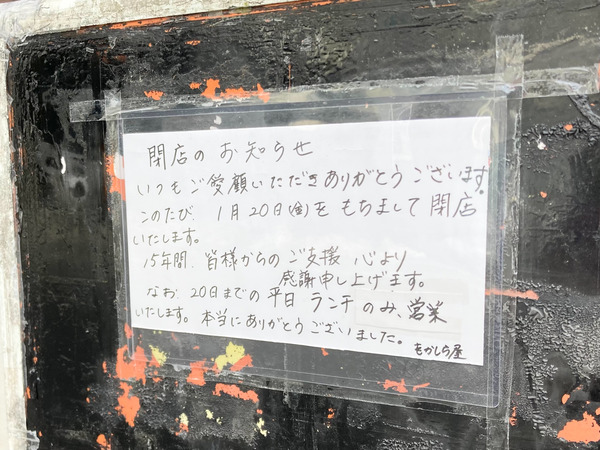 閉店のお知らせ
いつもご愛顧いただきありがとうございます。
このたび、1月20日(金)をもちまして閉店
いたします。
15年間、皆様からのご支援 心より
感謝申し上げます。
なお、20日までの平日ランチのみ、営業
いたします。本当にありがとうございました。
もかしら屋